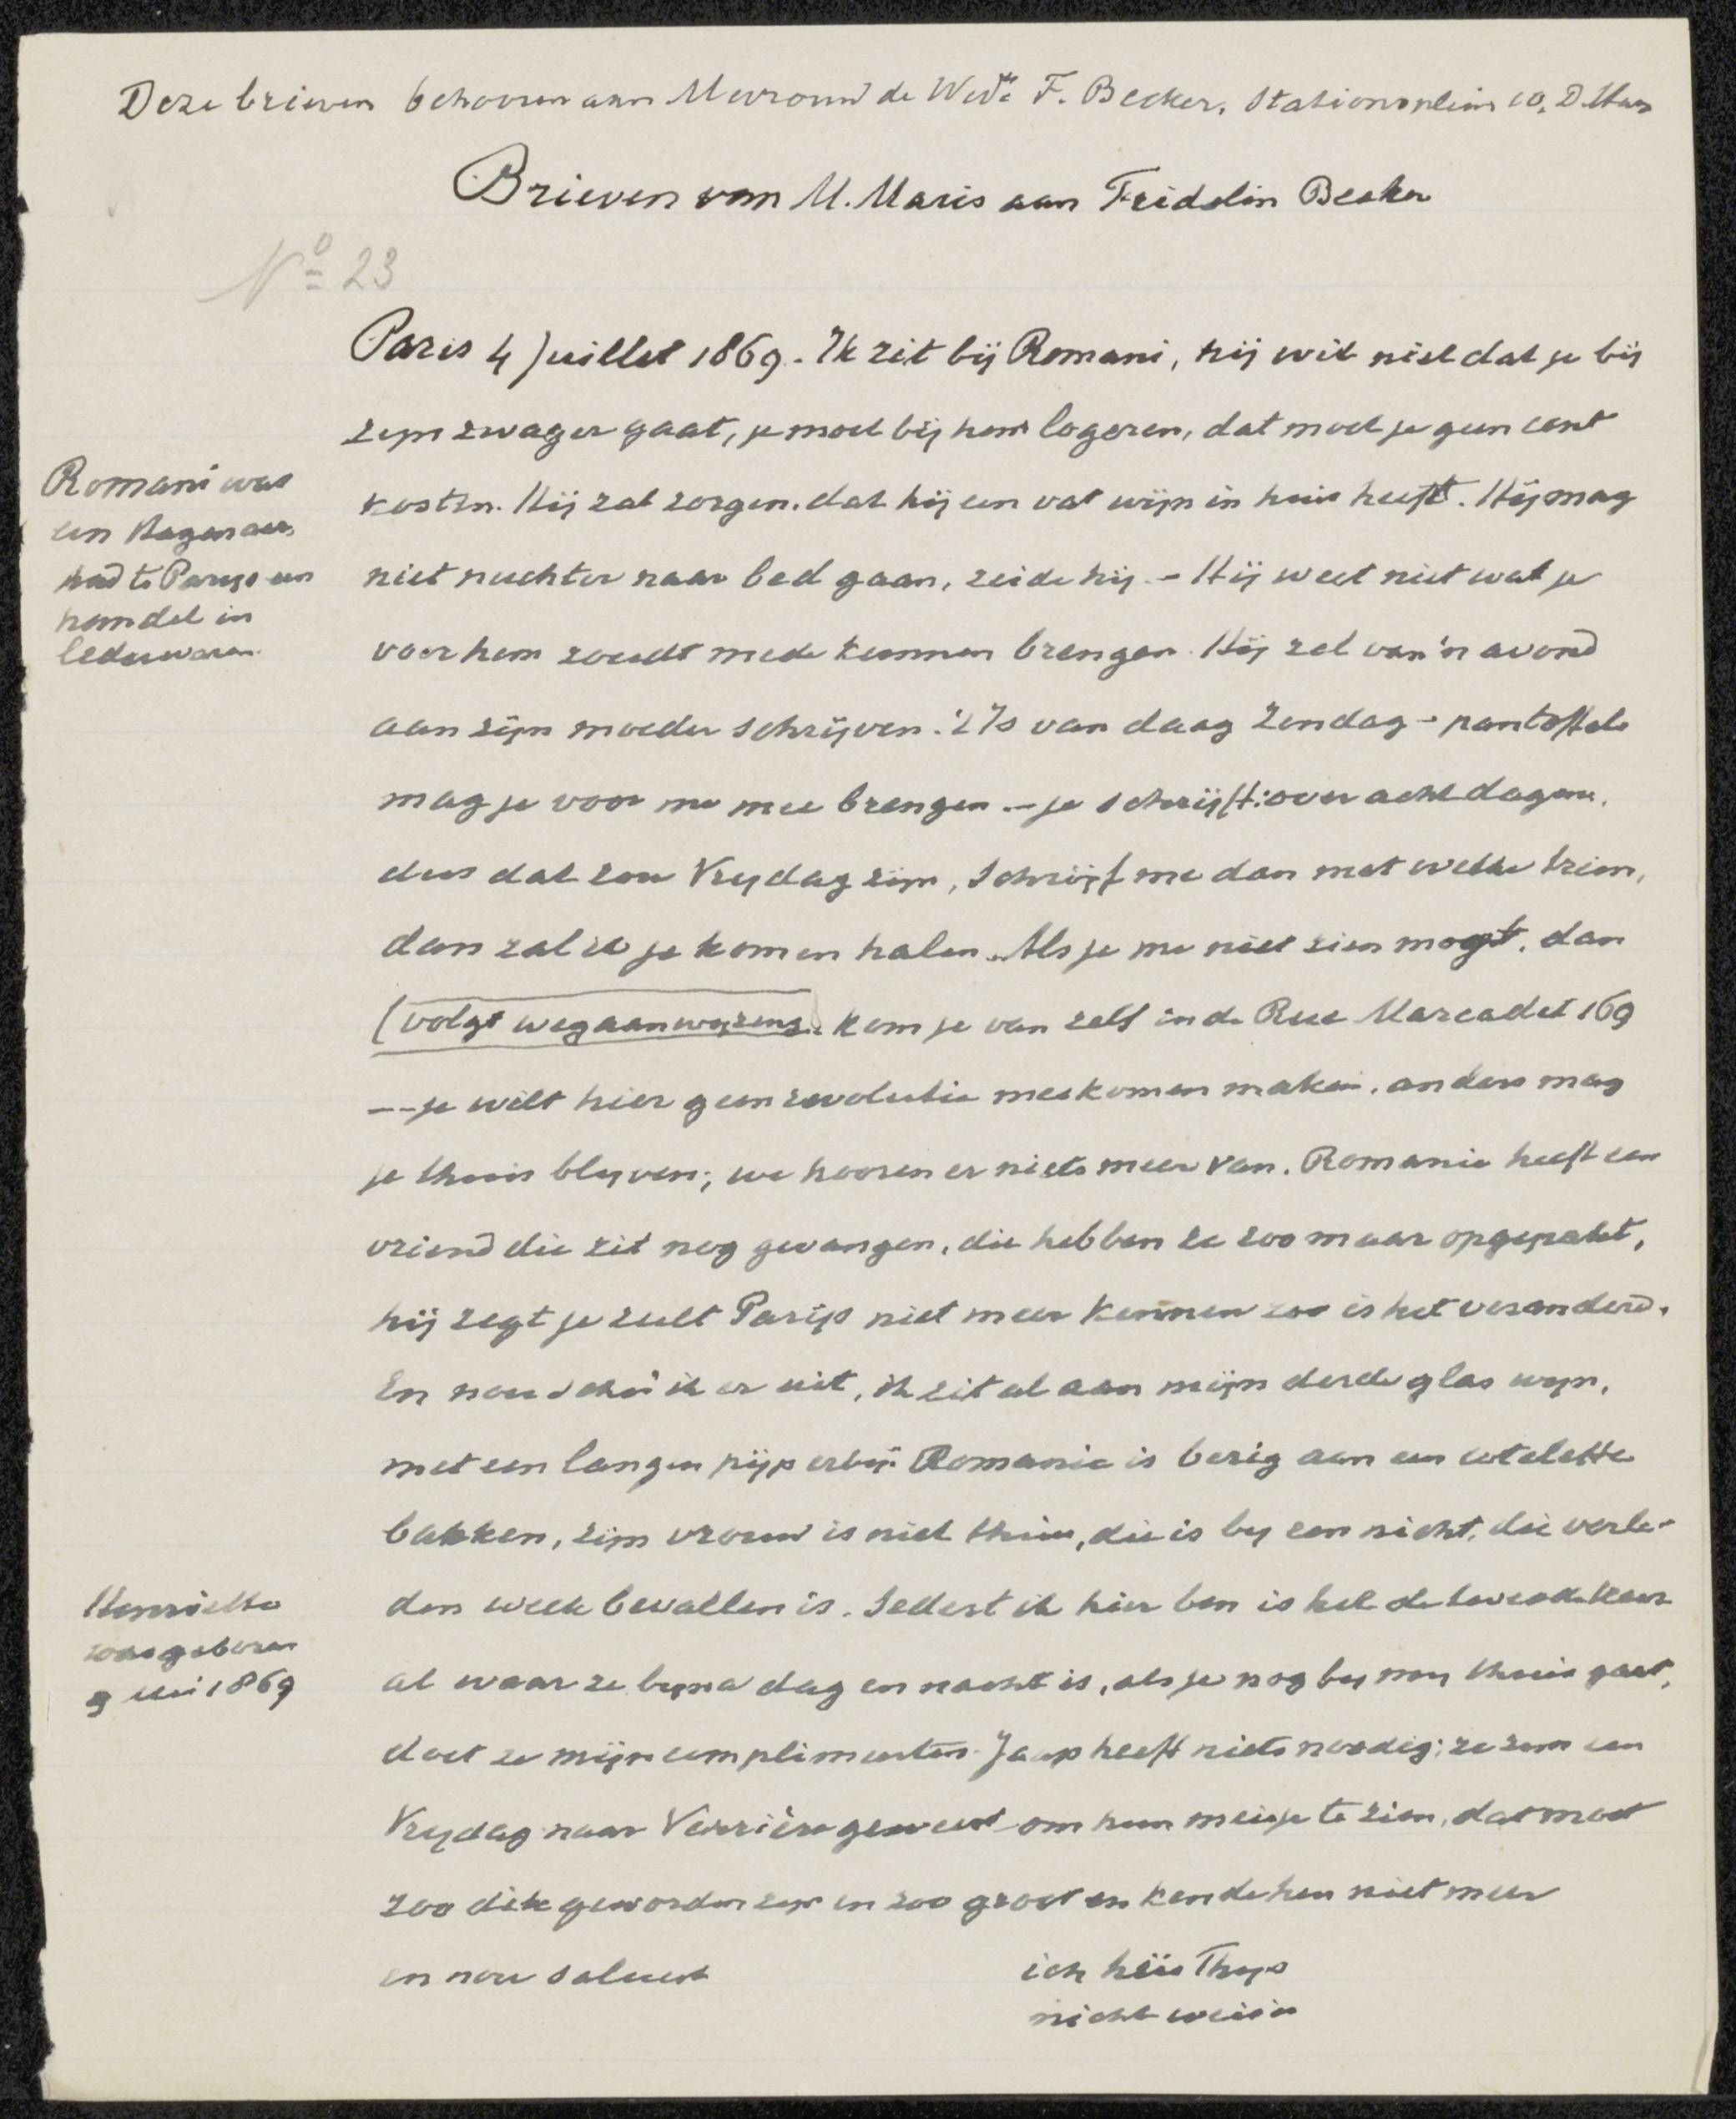 Deze brieven behooren aan Mevrouw de Wede F. Becker, Stationsplein 10, D.Haag
Brieven van M. Maris aan Fridolin Becker
No 23
Paris 4 Juillet 1869. Ik zit bij Romani, hij wil niet dat je bij
zijn zwager gaat, je moet bij hem logeren, dat moet je geen cent
kosten. Hij zal zorgen, dat hij een vat wijn in huis heeft. Hij mag
niet nuchter naar bed gaan, zeide hij. – Hij weet niet wat je
voor hem zoudt mede kunnen brengen. Hij zal van 'n avond
aan zijn moeder schrijven. 't Is van daag Zondag – pantoffels
mag je voor me mee brengen. – je schrijft: over acht dagen,
dus dat zou Vrydag zijn, schrijf me dan met welke trein,
dan zal ik je komen halen. Als je me niet zien mogt, dan
(volgt wegaanwyzing) kom je van zelf in de Rue Marcadet 169
-- je wilt hier geen revolutie meekomen maken, anders mag
je thuis blyven; we hooren er niets meer van. Romanie heeft een
vriend die zit nog gevangen, die hebben ze zoo maar opgepakt,
hij zegt je zult Parijs niet meer kennen zoo is het veranderd.
En nou schei ik er uit, ik zit al aan mijn derde glas wyn,
met een langen pijp erbij. Romanie is bezig aan een cotelette
bakken, zijn vrouw is niet thuis, die is by een nicht, die verle-
den week bevallen is. Sedert ik hier ben is het de tweede keer
al waar ze byna dag en nacht is, als je nog by my thuis gaat,
doet ze mijn complimenten. Jaap heeft niets noodig; ze zyn een
Vrydag naar Verrière geweest om hun meisje te zien, dat moet
zoo dik geworden zijn en zoo groot en kende hen niet meer
en nou saluut
ich heis Thys
nicht weiss
Romani was
een Hagenaar,
had te Parys een
handel in
lederwaren.
Henriette
was geboren
9 Mei 1869